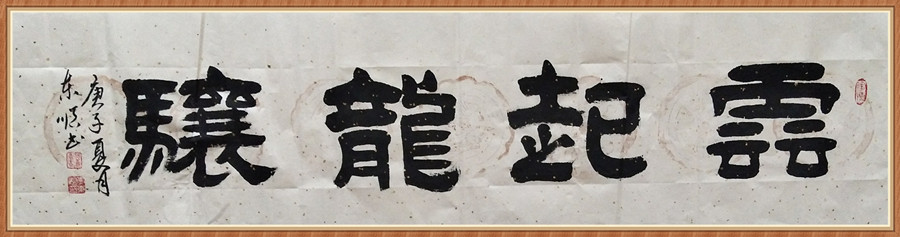 雲起龍驤
庚子夏月
东順书